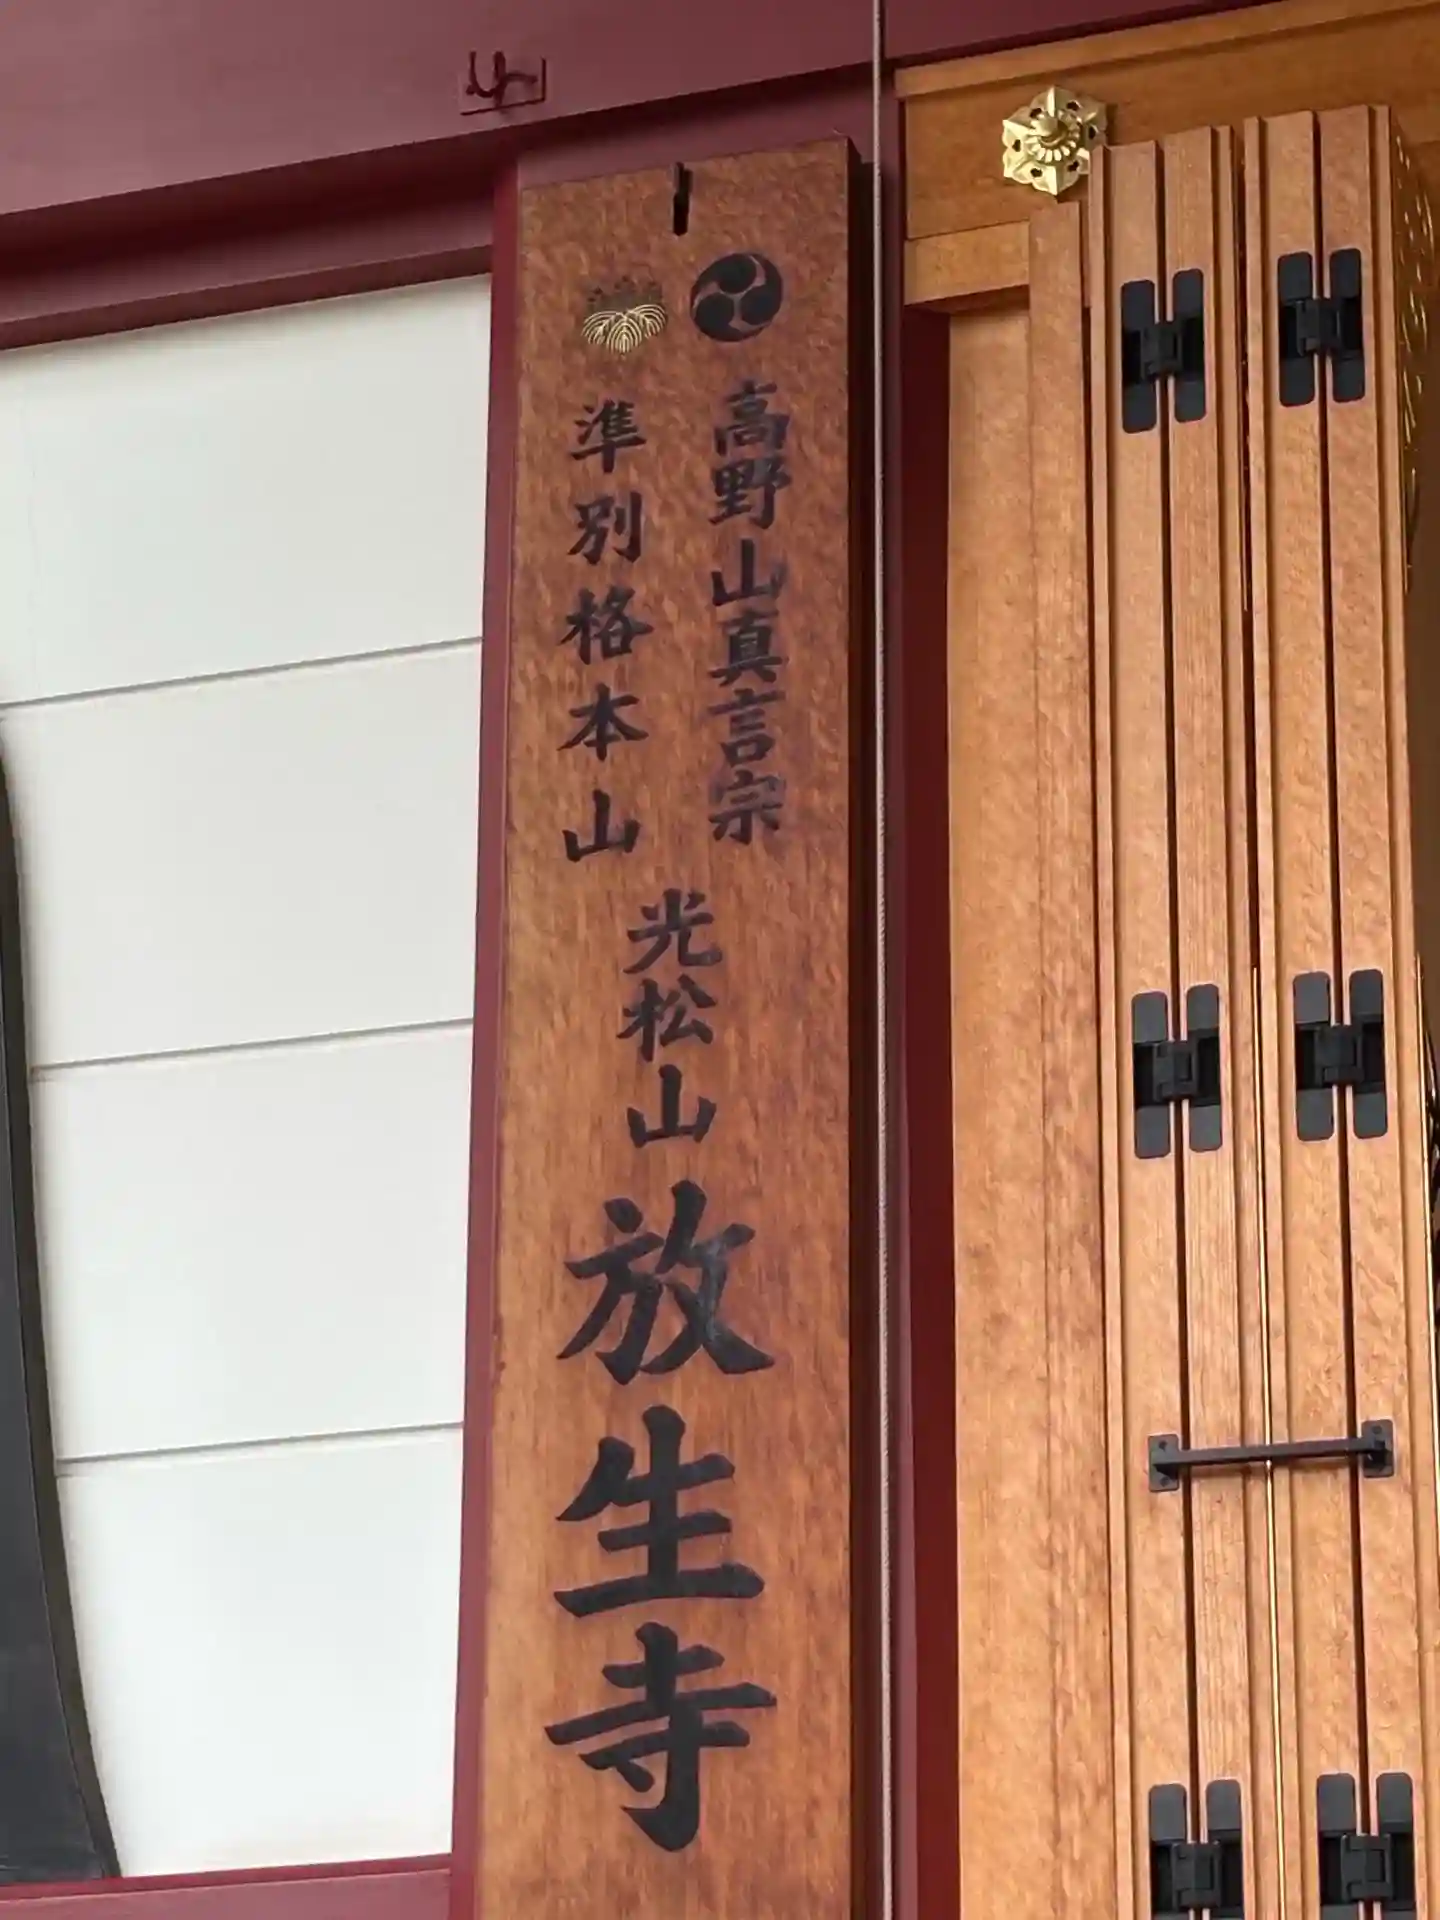 高野山真言宗
準別格本山
光松山
放生寺